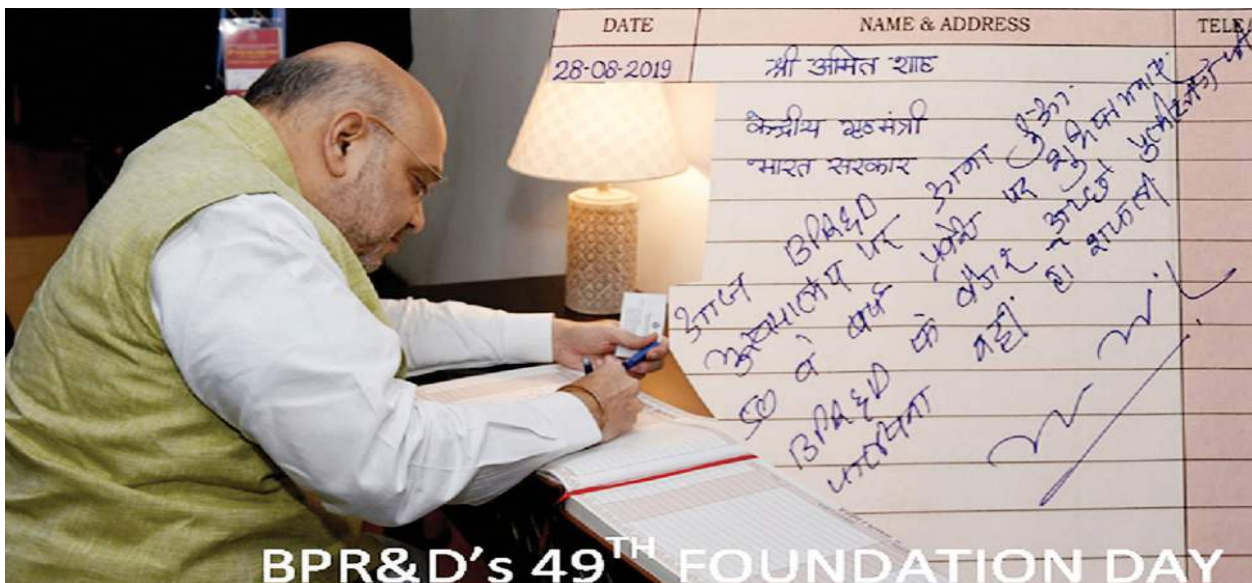 DATE NAME & ADDRESS TELE
28-08-2019 श्री अमित शाह
केन्द्रीय गृहमंत्री
भारत सरकार
आज BPR&D
मुख्यालय पर आना हुआ.
50 वे वर्ष प्रवेश पर
BPR&D के बगैर अच्छे
नहीं हो सकती
BPR&D's 49TH FOUNDATION DAY